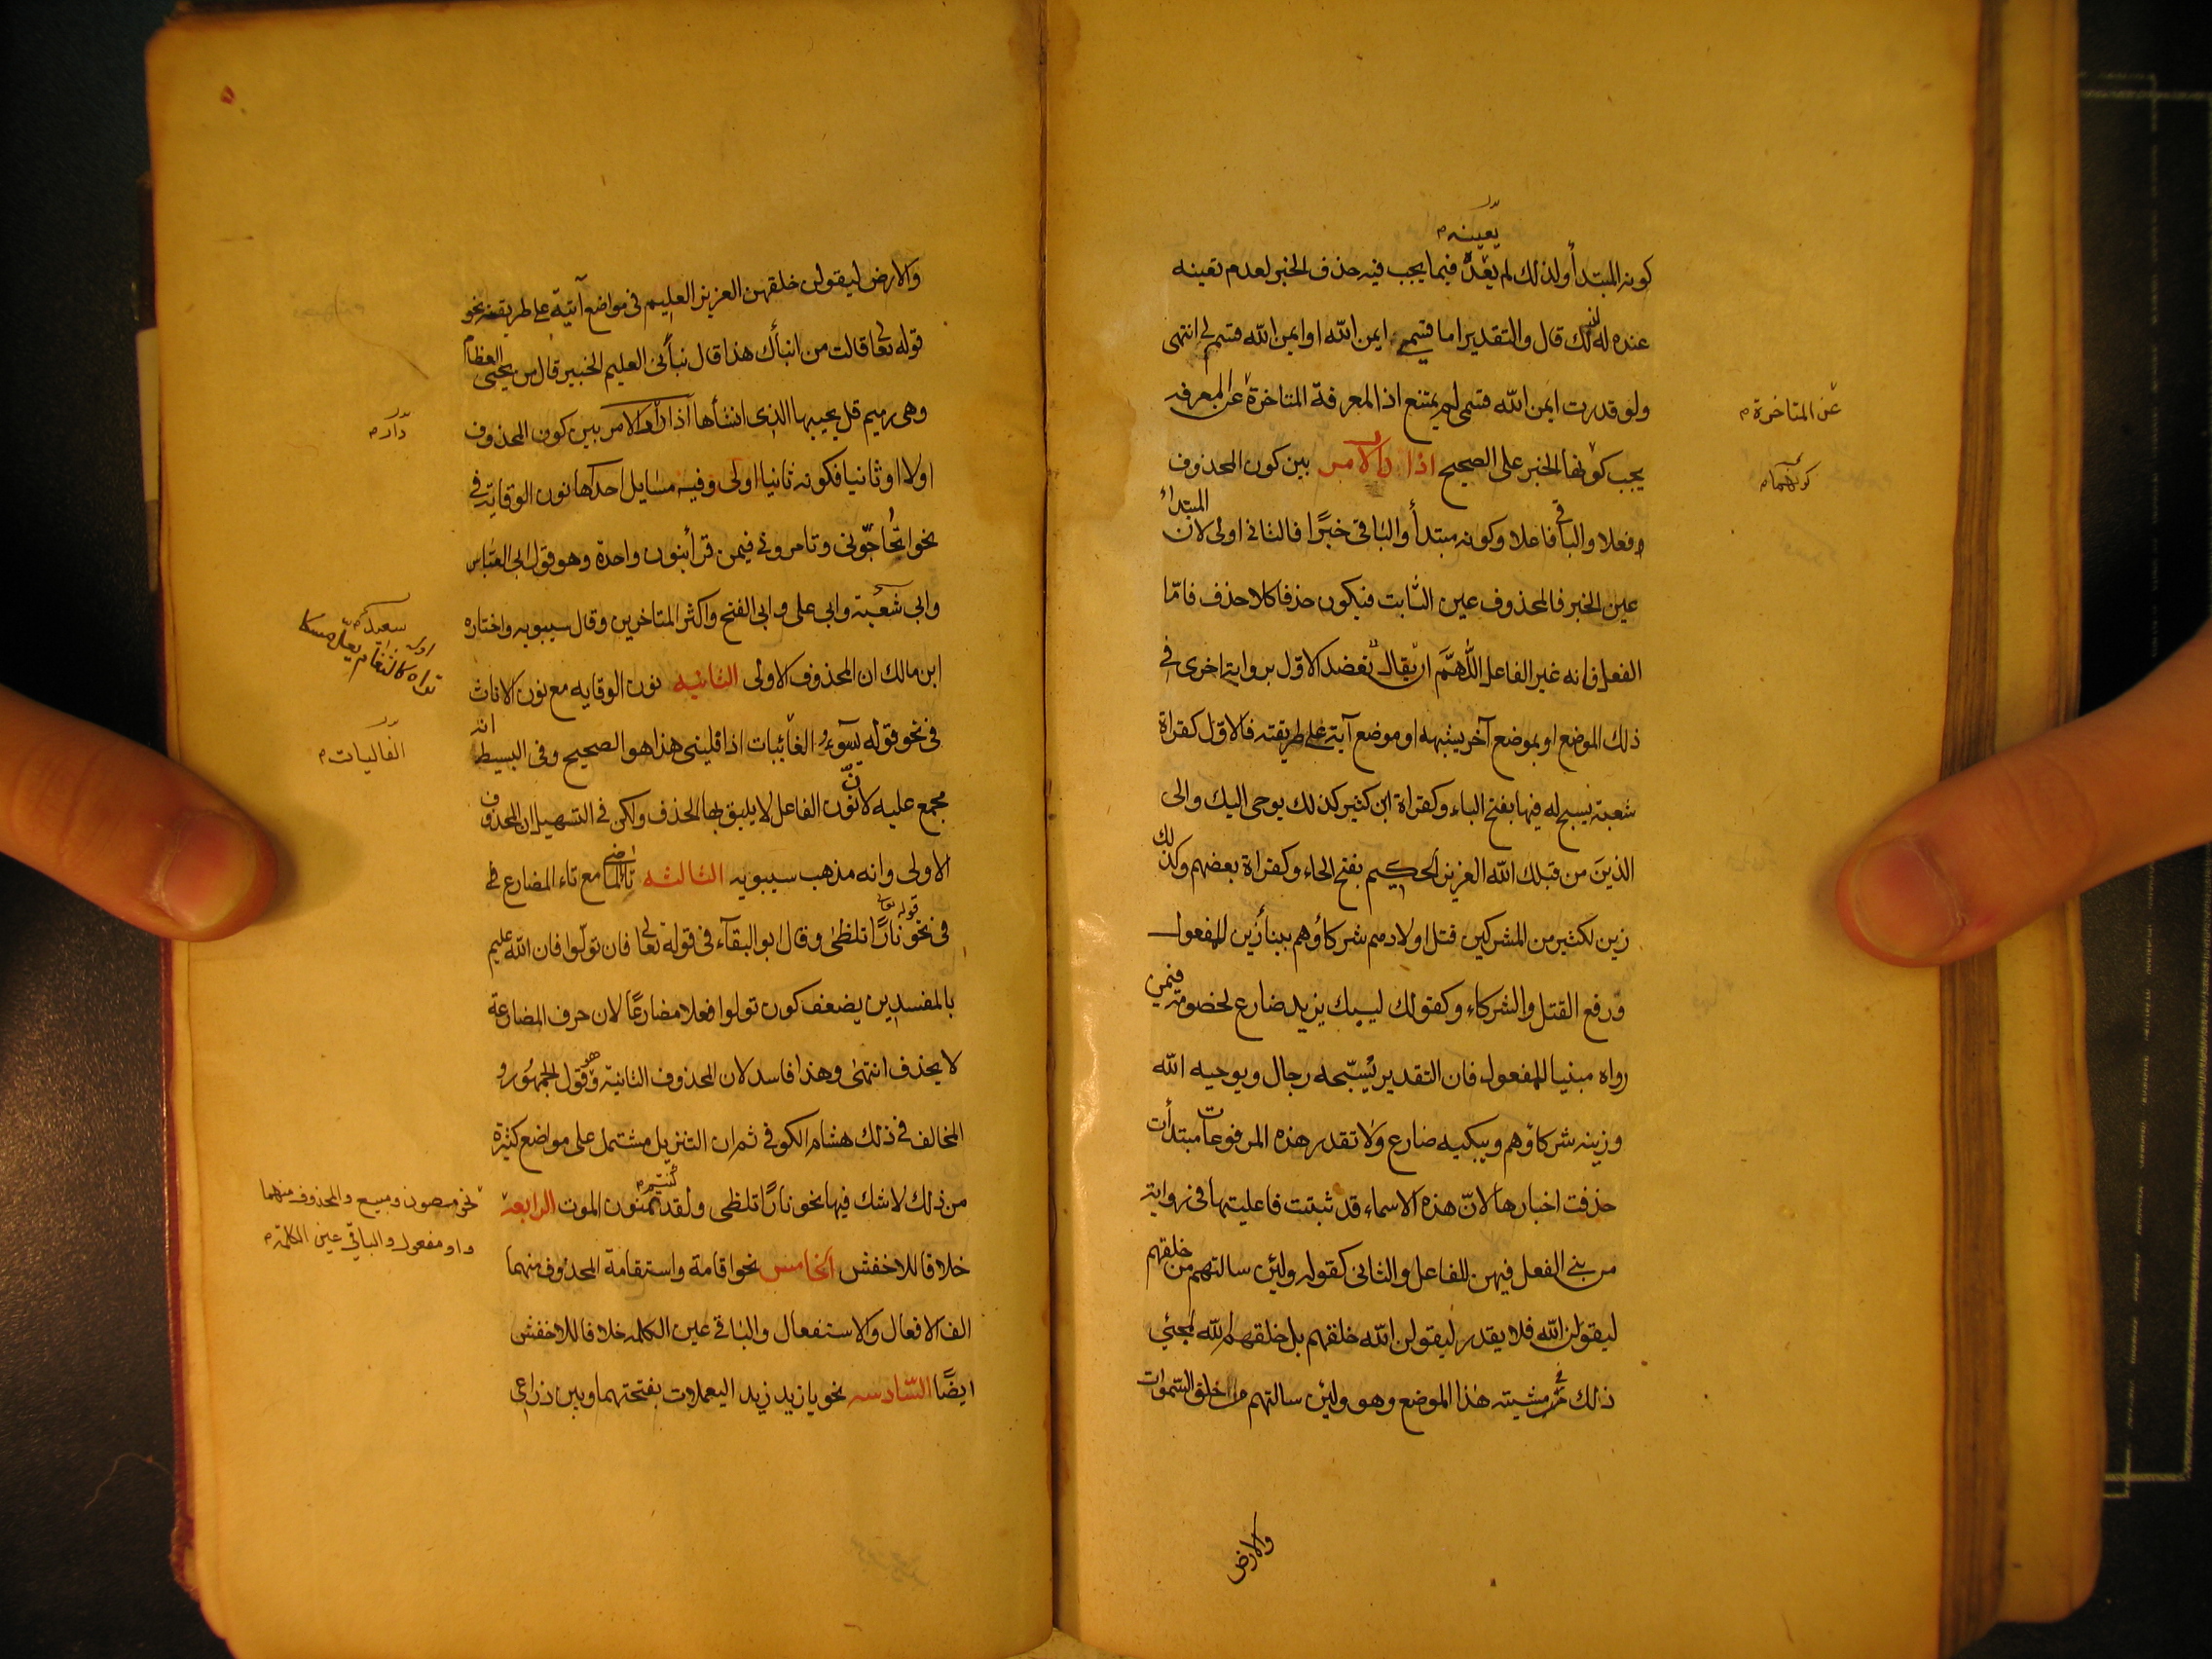 يعينه م
كونه المبتدأ ولذلك لم يعدّه فيما يجب فيه حذف الخبر لعدم تعينه
عنده لذلك قال والتقدير اما قسمي ايمن الله او ايمن الله قسم لي انتهى
ولو قدرت ايمن الله قسمي لم يمتنع اذ المعرفة المتاخرة عن المعرفه
عن المتاخرة م
يجب كونها الخبر على الصحيح اذا دار الامر بين كون المحذوف
كونهما م
فعلا والباقي فاعلا وكونه مبتدأ والباقي خبرًا فالثاني اولى لان المبتدأ
عين الخبر فالمحذوف عين الثابت فيكون حذفا كلا حذف فامّا
الفعل فانه غير الفاعل اللّهمَّ ان يقال تعضد الاوّل برواية اخرى في
ذلك الموضع او بموضع آخر يشبهه او موضع آية على طريقته فالاوّل كقراة
شعبة يسبح له فيها بفتح الباء وكقراة ابن كثير كذلك يوحى اليك والى
الذينَ من قبلك الله العزيز الحكيم بفتح الحاء وكقراة بعضهم وكذلك
زين لكثير من المشركين قتل اولادهم شركاؤهم ببناء زين للمفعول
ورفع القتل والشركاء وكقولك ليبك يزيد ضارع لخصومة فيمن
رواه مبنيا للمفعول فان التقدير يُسبّحه رجال ويوحيه الله
وزينه شركاؤهم ويبكيه ضارع ولا تقدر هذه المرفوعات مبتدأت
حذفت اخبارها لانّ هذه الاسماء قد ثبتت فاعليتها في رواية
من بني الفعل فيهن للفاعل والثاني كقوله ولئن سالتهم من خلقهم
ليقولن الله فلا يقدر ليقولن الله خلقهم بل خلقهم الله لمجئي
ذلك في مشبته هذا الموضع وهو ولئن سالتهم من خلق السموات
والارض
والارض ليقولن خلقهن العزيز العليم في مواضع آتية على طريقته نحو
قوله تعا قالت من انبأك هذا قال نبأني العليم الخبير قال من يحيى العظام
وهي رميم قل يحييها الذي انشأها اذا دار الامر بين كون المحذوف
دار م
اولا او ثانيا فكونه ثانيا اولى وفيه مسايل احدها نون الوقاية في
نحو اتحاجّوني وتامروني فيمن قرأ بنون واحدة وهو قول ابي العباس
وابي شعبة وابي علي وابي الفتح واكثر المتاخرين وقال سيبويه واختاره
سعيد م
ابن مالك ان المحذوف الاولى الثانيه نون الوقايه مع نون الاناث
تراه كالثغام يعلّ مسكا
في نحو قوله يسوء الغائبات اذا قليني هذا هو الصحيح وفي البسيط انه
الفاليات م
مجمع عليه لان نون الفاعل لا يليق بها الحذف ولكن في التسهيل ان المحذوف
الاولى وانه مذهب سيبويه الثالثه تا الماضي مع تاء المضارع في
في نحو قوله تعالى نارًا تلظى وقال ابو البقآء في قوله تعالى فان تولّوا فان الله عليم
بالمفسدين يضعف كون تولوا فعلا مضارعًا لان حرف المضارعة
لا يحذف انتهى وهذا فاسد لان المحذوف الثانية وهو قول الجمهور و
المخالف في ذلك هشام الكوفي ثم ان التنزيل مشتمل على مواضع كثيرة
من ذلك لا شك فيها نحو نارًا تلظى ولقد كنتم تمنون الموت الرابعة
نحو مصون ومبيع والمحذوف منهما
واو مفعول والباقي عين الكلمة م
خلافا للاخفش الخامس نحو اقامة واستقامة المحذوف منهما
الف الافعال والاستفعال والباقي عين الكلمه خلافا للاخفش
ايضًا السّادسه نحو يا زيد زيد اليعملات بفتحتهما وبين ذراعي